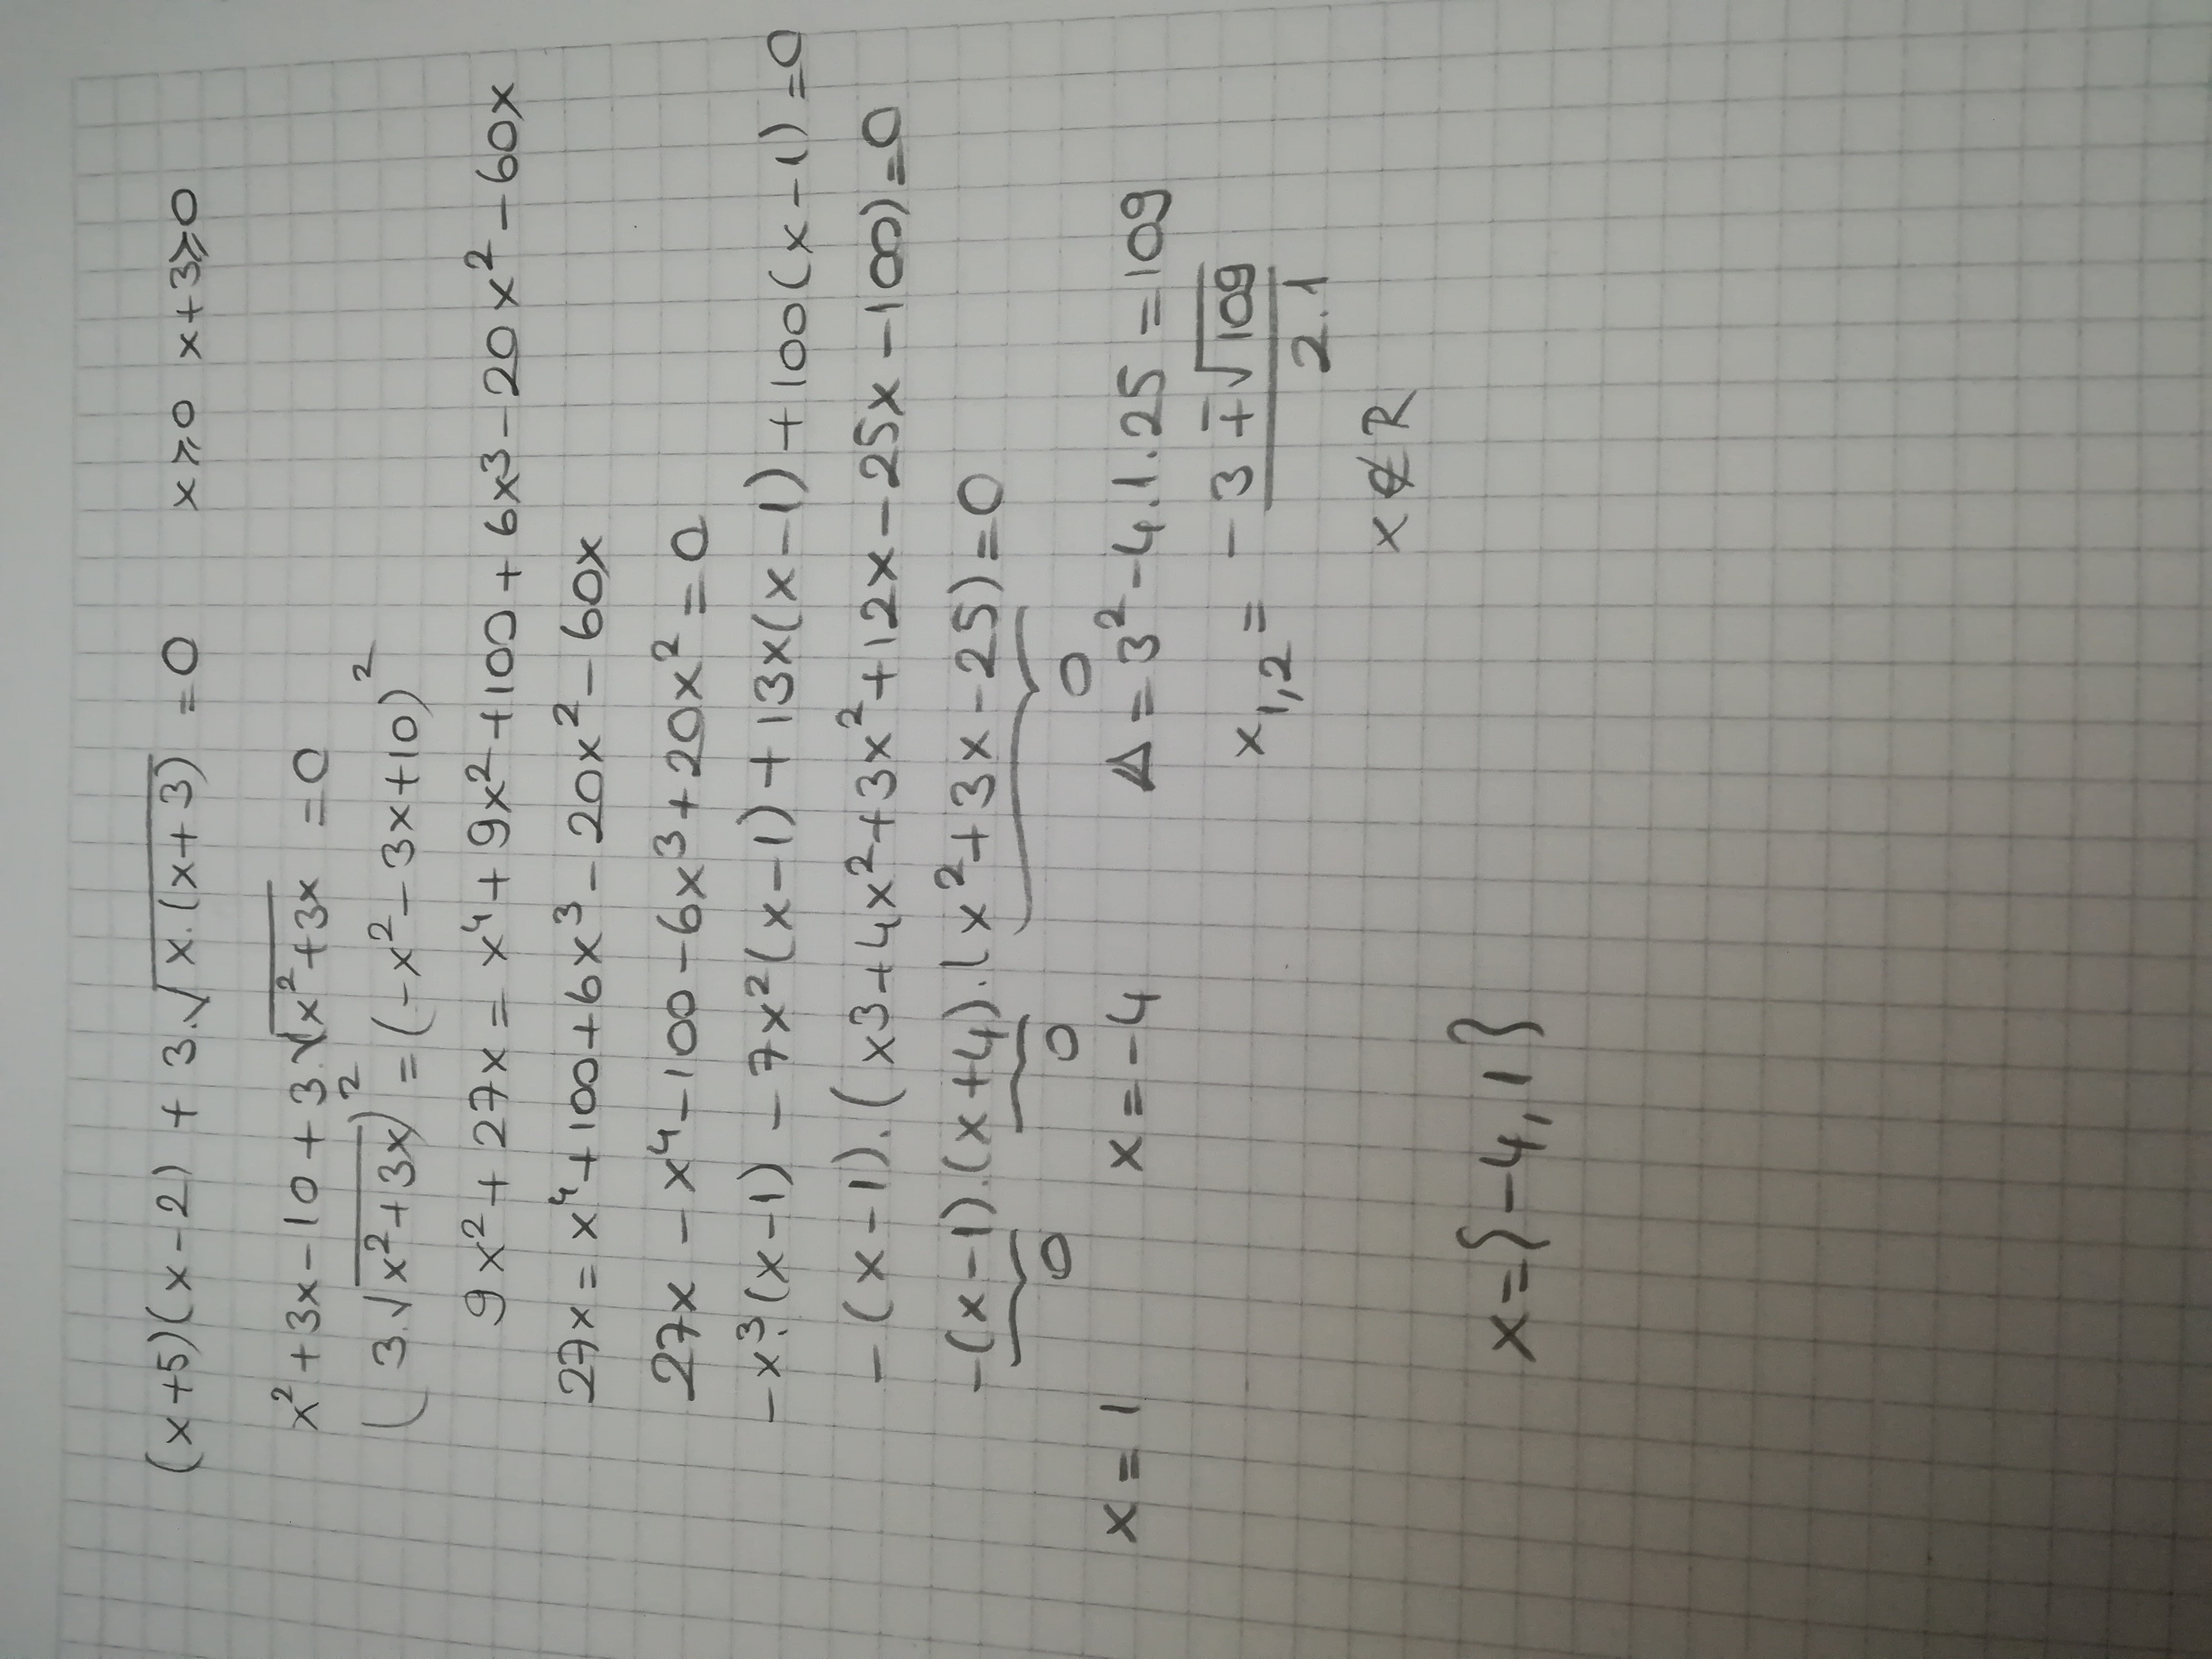 (x+5)(x-2) + 3.√x.(x+3) = 0 x⩾0 x+3⩾0
x²+3x-10+3.√x²+3x = 0
(3.√x²+3x)² = (-x²-3x+10)²
9x²+27x = x⁴+9x²+100+6x³-20x²-60x
27x = x⁴+100+6x³-20x²-60x
27x-x⁴-100-6x³+20x² = 0
-x³.(x-1) -7x²(x-1)+13x(x-1)+100(x-1)=0
-(x-1).(x3+4x²+3x²+12x-25x-100)=0
-(x-1).(x+4).(x²+3x-25)=0
0 0 0
x = 1 x=-4 Δ=3²-4.1.25=109
x1,2 = -3∓√109
2.1
x∉R
x={-4,1}